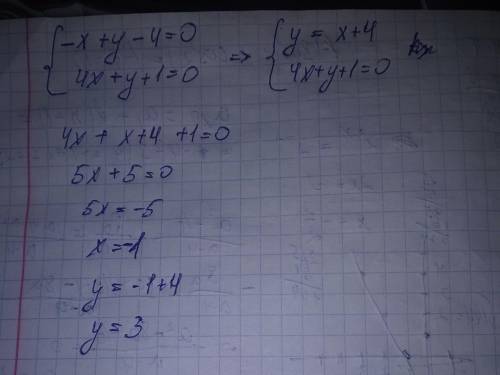 { -x + y - 4 = 0 => { y = x + 4
{ 4x + y + 1 = 0 { 4x + y + 1 = 0
4x + x + 4 + 1 = 0
5x + 5 = 0
5x = -5
x = -1
y = -1 + 4
y = 3